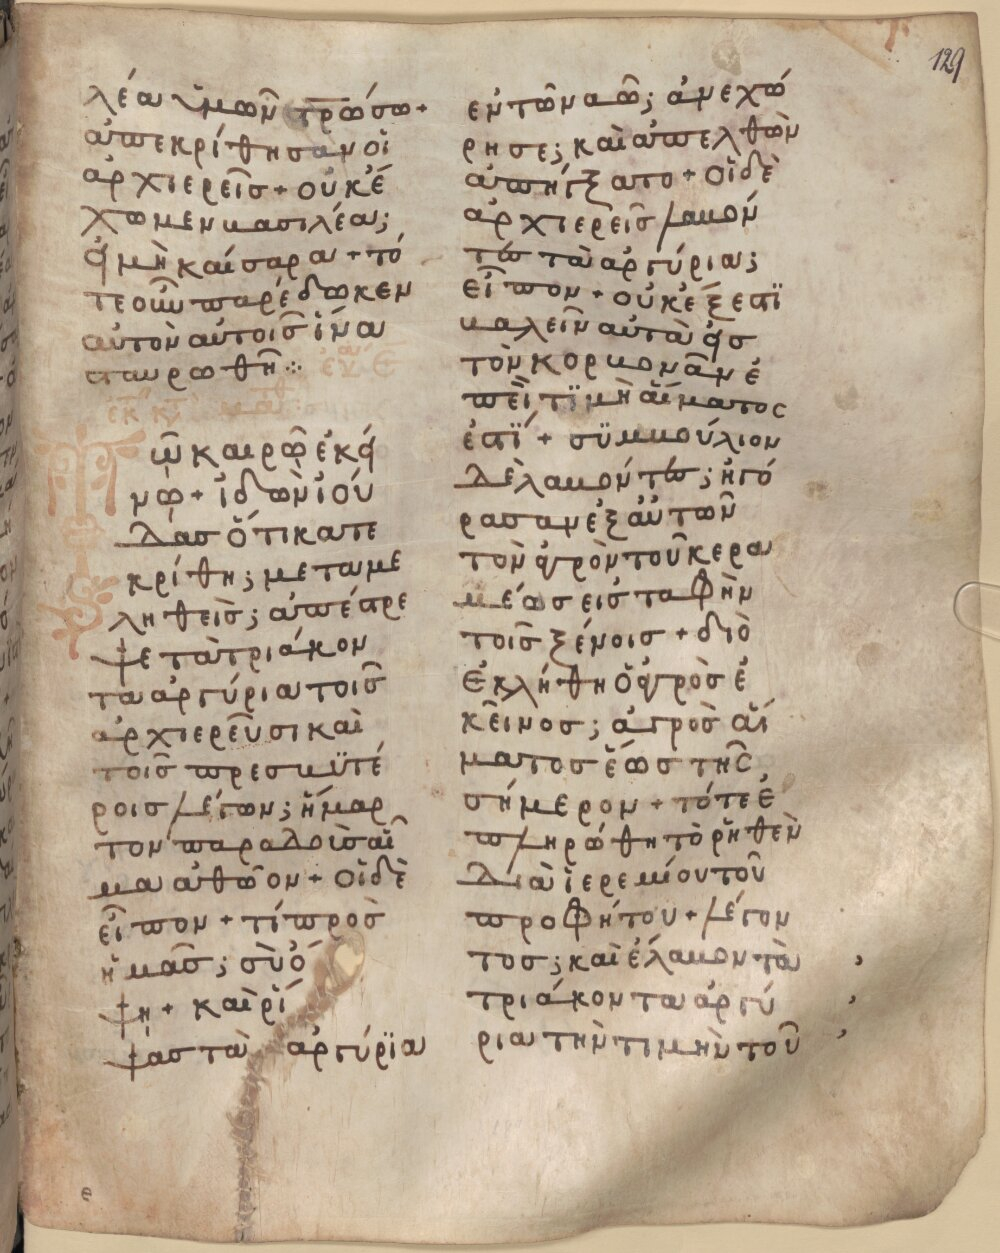 129
λέα ὑμῶν στρώσω +
ἀπεκρίθησαν οἱ
ἀρχιερεῖς + οὐκ ἔ
χωμεν βασιλέα;
εἰ μὴ καίσαρα + τό
τε οὖν παρέδωκεν
αὐτὸν αὐτοῖς ἵνα
σταυρωθῆ ·:·
ῶ καιρῶ ἐκεί
νω + ἰδὼν ἰού
δας ὅτι κατε
κρίθη; μεταμε
ληθεὶς; ἀπέστρε
ψε τὰ τριάκον
τα ἀργύρια τοῖς
ἀρχιερεῦσι καὶ
τοῖς πρεσβυτέ
ροις λέγων; ἥμαρ
τον παραδοὺς αἷ
μα ἀθῶον + οἱ δὲ
εἶπον + τί πρὸς
ἡμᾶς; σὺ ὄ
ψη + καὶ ρί
ψας τὰ ἀργύρια
ἐν τῶ ναῶ; ἀνεχώ
ρησε; καὶ ἀπελθὼν
ἀπήγξατο + οἱ δὲ
ἀρχιερεῖς λαβόν
τες τὰ ἀργύρια;
εἶπον + οὐκ ἔξεστι
βαλεῖν αὐτὰ εἰς
τὸν κορβονᾶν ἐ
πεὶ τιμὴ αἵματος
ἐστί + συμβούλιον
δὲ λαβόντες; ἠγό
ρασαν ἐξ αὐτῶν
τὸν ἀγρὸν τοῦ κερα
μέως εἰς ταφὴν
τοῖς ξένοις + διὸ
ἐκλήθη ὁ ἀγρὸς ἐ
κεῖνος; ἀγρὸς αἵ
ματος ἕως τῆς
σήμερον + τότε ἐ
πληρώθη τὸ ρηθὲν
διὰ ἱερεμίου τοῦ
προφήτου + λέγον
τος; καὶ ἔλαβον τὰ
τριάκοντα ἀργύ
ρια τὴν τιμὴν τοῦ